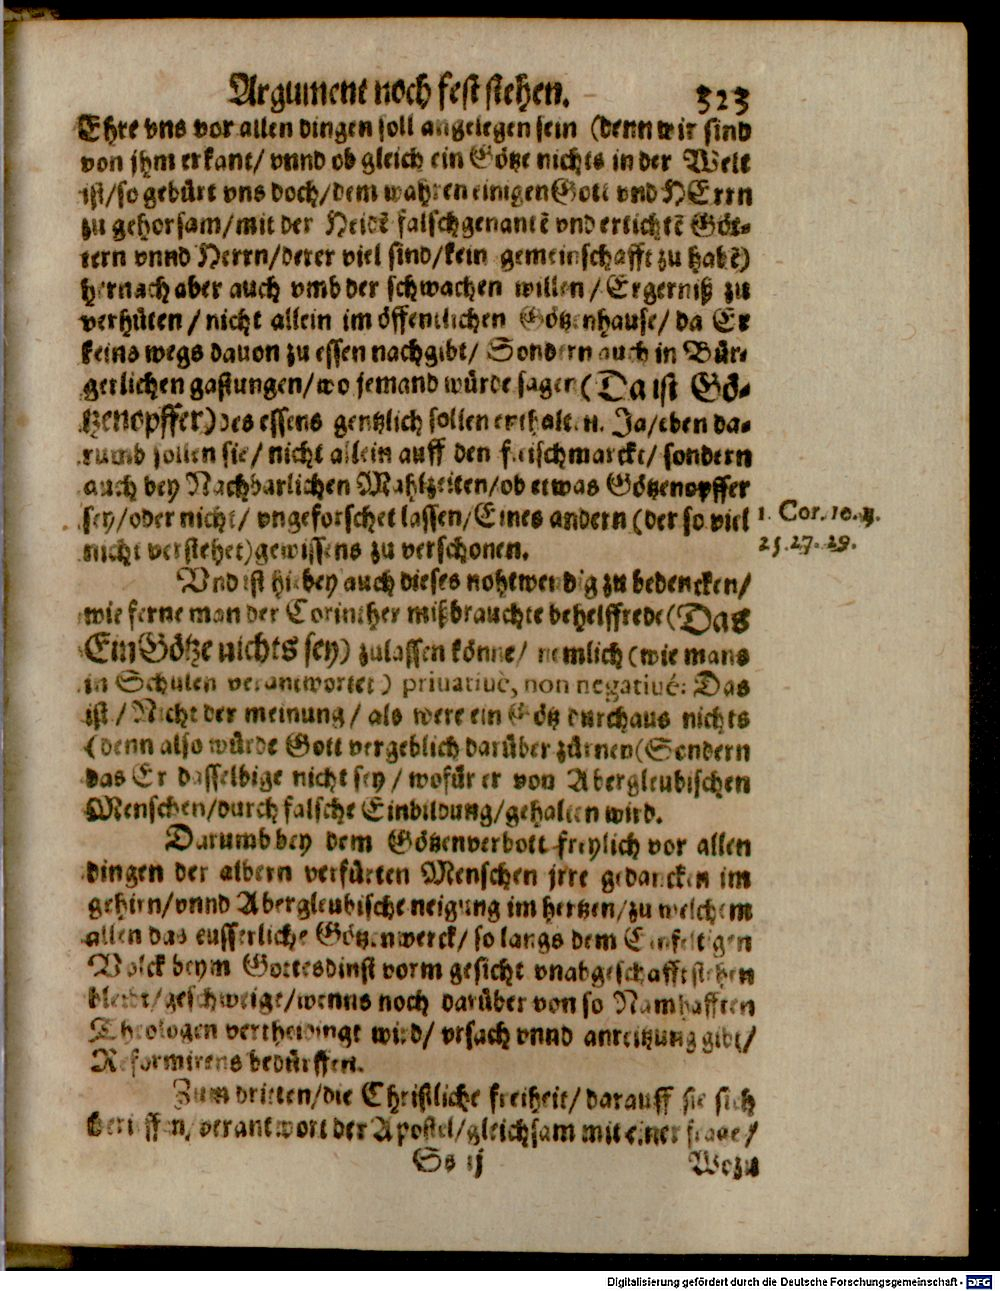 Argument noch fest stehen. 323
Ehre vns vor allen dingen soll angelegen sein (denn wir sind
von jhm erkant/ vnnd ob gleich ein Götze nichts in der Welt
ist/ so gebürt vns doch/ dem wahren einigen Gott vnd HErrn
zu gehorsam/ mit der Heidē falschgenantē vnd ertichtē Göt-
tern vnnd Herrn/ derer viel sind/ kein gemeinschafft zu habē)
hernach aber auch vmb der schwachen willen/ Ergerniß zu
verhüten/ nicht allein im öffentlichen Götzenhause/ da Er
keins wegs dauon zu essen nachgibt/ Sondern auch in Bür-
gerlichen gastungen/ wo jemand würde sagen (Da ist Gö-
tzenopffer) des essens gentzlich sollen enthalten. Ja/ eben da-
rumb sollen sie/ nicht allein auff den fleischmarckt/ sondern
auch bey Nachbarlichen Mahlzeiten/ ob etwas Götzenopffer
sey/ oder nicht/ vngeforschet lassen/ Eines andern (der so viel
nicht verstehet) gewissens zu verschonen.
1. Cor. 10.
25. 27. 29.
Vnd ist hiebey auch dieses nohtwendig zu bedencken/
wie ferne man der Corinther mißbrauchte behelffrede (Das
Ein Götze nichts sey) zulassen könne/ nemlich (wie mans
in Schulen verantwortet) priuatiuè, non negatiuè: Das
ist/ Nicht der meinung/ als were ein Götz durchaus nichts
(denn also würde Gott vergeblich darüber zürnen (Sondern
das Er dasselbige nicht sey/ wofür er von Abergleubischen
Menschen/ durch falsche Einbildung/ gehalten wird.
Darumb bey dem Götzenverbott freylich vor allen
dingen der albern verfürten Menschen jrre gedancken im
gehirn/ vnnd Abergleubische neigung im hertzen/ zu welchem
allen das eusserliche Götzenwerck/ so langs dem Einfeltigen
Volck beym Gottesdinst vorm gesicht vnabgeschafft stehen
bleibt/ geschweige/ wenns noch darüber von so Namhafften
Theologen vertheidingt wird/ vrsach vnnd anreitzung gibt/
Reformirens bedürffen.
Zum dritten/ die Christliche freiheit/ darauff sie sich
beruffen, verantwort der Apostel/ gleichsam mit einer frage/
Ss ij Wozu
Digitalisierung gefördert durch die Deutsche Forschungsgemeinschaft - DFG